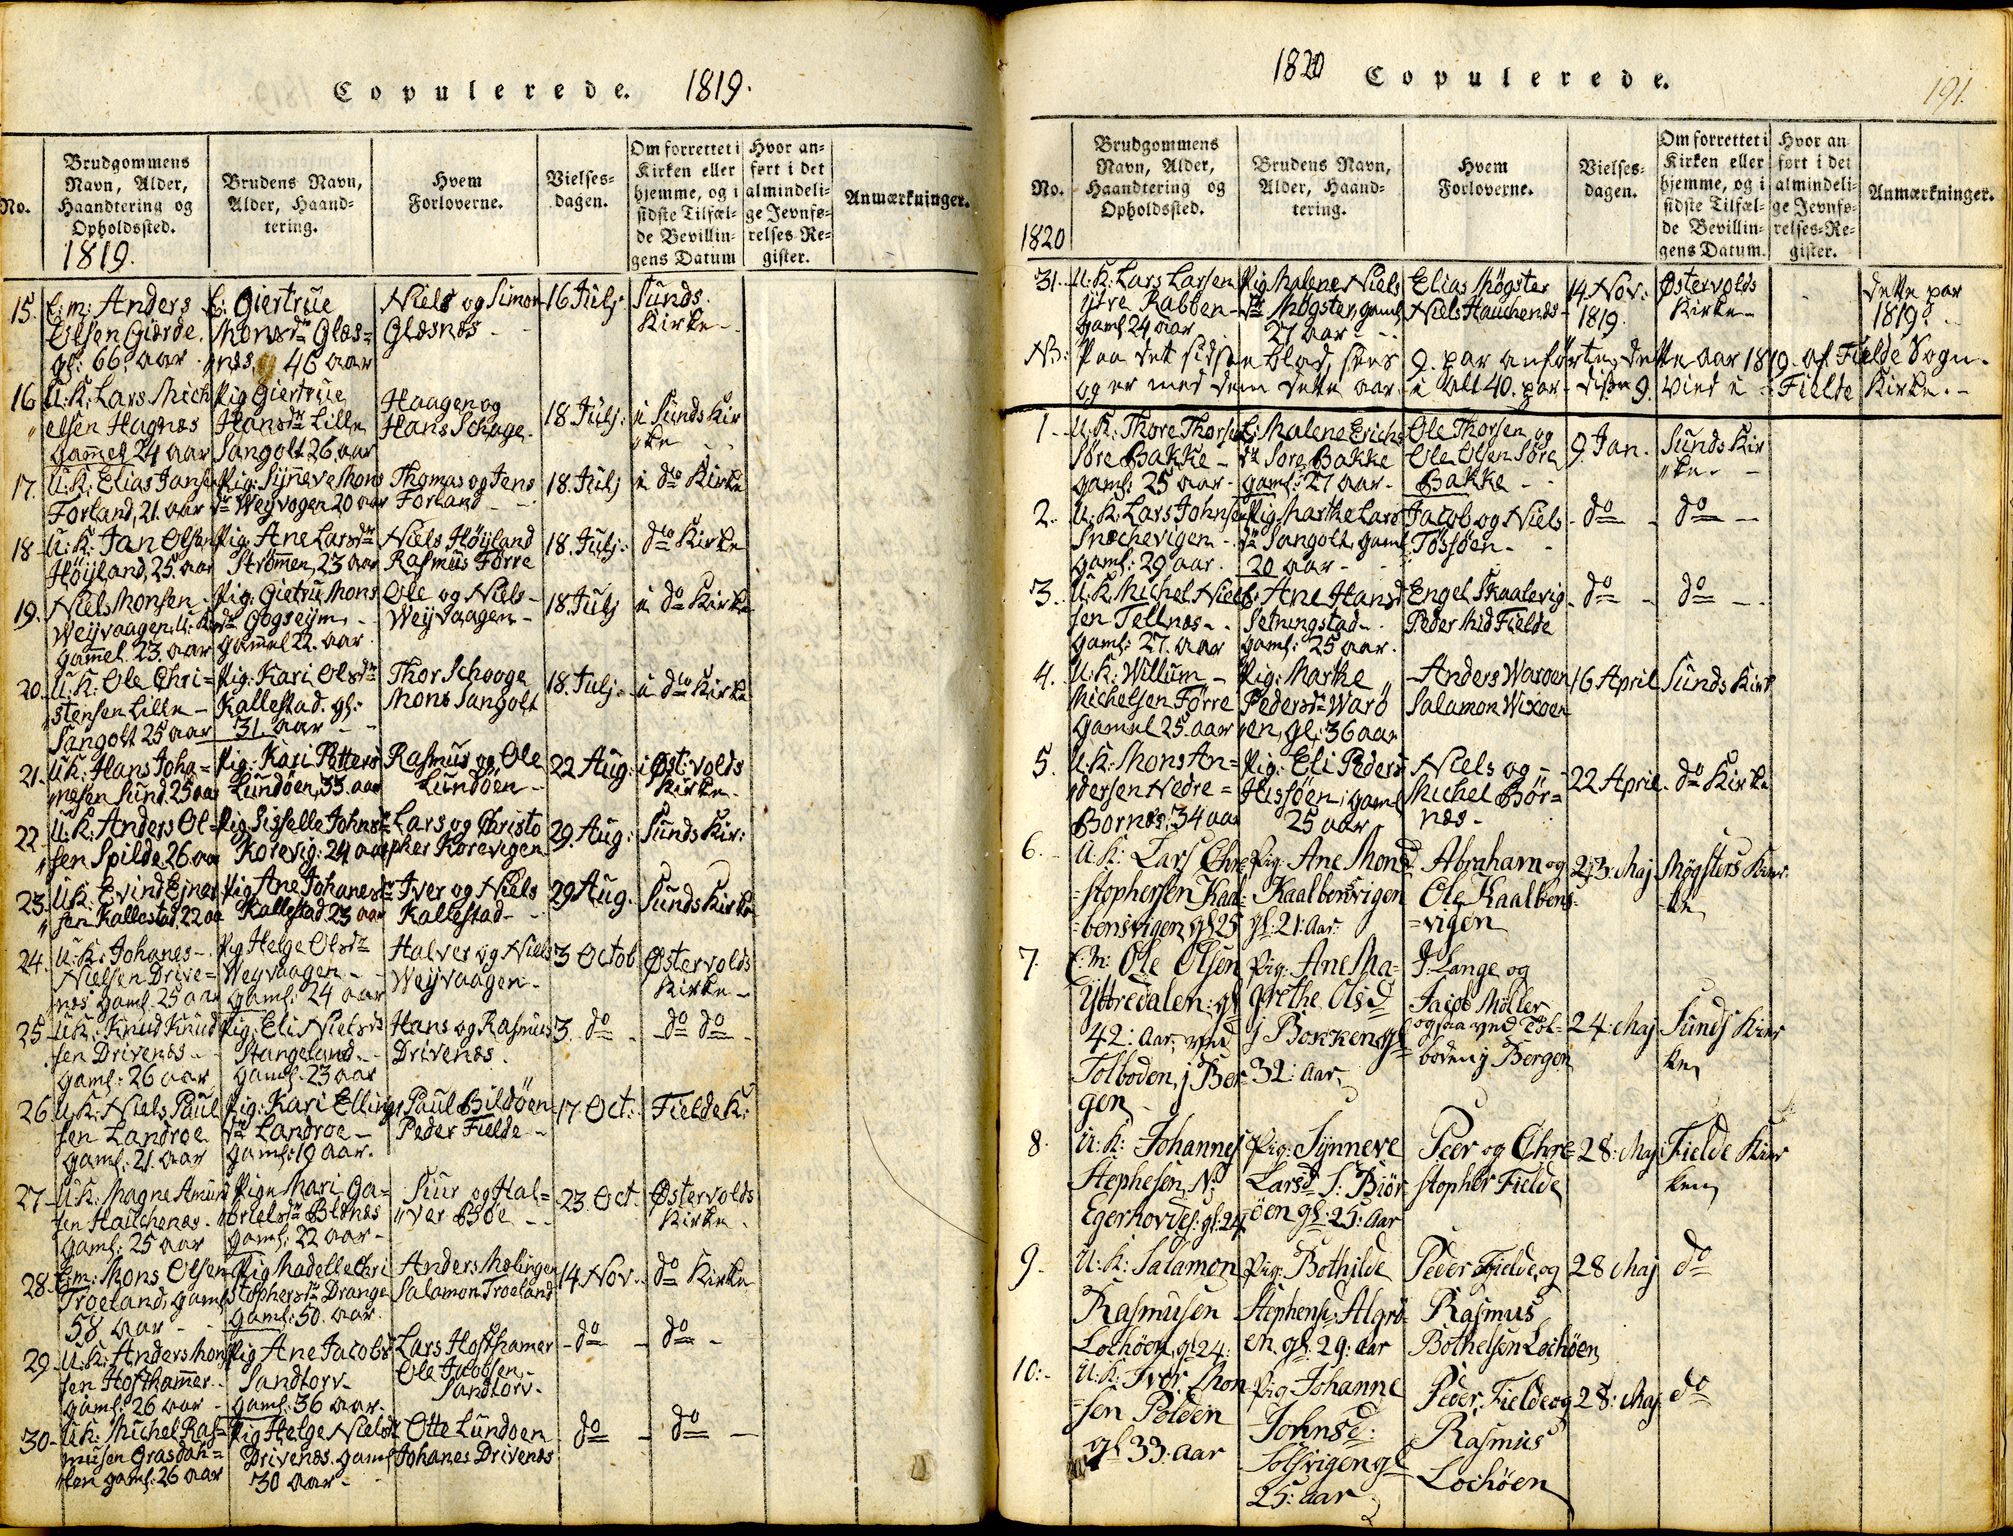 Copulerede. 1819.
No.
Brudgommens
Navn, Alder,
Haandtering og
Opholdssted.
1819.
Brudens Navn,
Alder, Haand-
tering.
Hvem
Forloverne.
Vielses-
dagen.
Om forrettet i
Kirken eller
hjemme, og i
sidste Tilfæl-
de Bevillin-
gens Datum
Hvor an-
ført i det
almindeli-
ge Jevnfø-
relses-Re-
gister.
Anmærkninger.
15. E: m: Anders
Olsen Giærde.
gl: 66. aar
E: Giertrue
Monsdr Glæs=
næs, 46 aar
Niels og Simon
Glæsnæs
16 Julj.
Sunds.
Kirke
16 U: K: Lars Mich
elsen Hagnæs
gammel 24 aar
Pig Giertrue
Hansdr Lille
Sangolt 26 aar
Haagen og
Hans Schage.
18. Julj:
i Sunds Kir
ke
17. U: K: Elias Jansen
Forland, 21. aar
Pig: Synneve Mons
dr Weyvogen 20 aar
Thomas og Jens
Forland
18. Julj
i do Kirke
18 U: K: Jan Olsen
Höyland, 25. aar
Pig: Ane Larsdr
Strømmen, 23 aar
Niels Höyland
Rasmus Förre
18. Julj:
dto Kirke
19. Niels Monsen
Weyvaagen, U: K:
gammel. 23. aar
Pig: Gietru Mons
dr Gogseym
gammel 22. aar
Ole og Niels
Weyvaagen
18 Julj
i do Kirke
20. U: K: Ole Chri=
stensen Lille
Sangolt 25 aar
Pig: Kari Olsdr
Kallestad. gl:
31. aar
Thor Schooge
Mons Sangolt
18. Julj:
i dto Kirke
21. U K: Hans Joha=
nesen Sund. 25 aar
Pig: Kari Petters
Lundöen, 33. aar
Rasmus og Ole
Lundöen
22 Aug:
i Øst:volds
Kirke.
22. U: K: Anders Ol=
sen Spilde 26. aar
Pig. Sisselle Johnsdr
Korevig: 24 aar
Lars og Christo
pher Korevigen
29. Aug:
Sunds Kir:
23. U K: Evind Ejner
sen Kallestad, 22 aa
Pig Ane Johanesdr
Kallestad 23 aar
Iver og Niels
Kallestad
29 Aug.
Sunds Kirke
24. U: K: Johanes
Nielsen Drive=
næs gaml. 25 aar
Pig Helge Olsdr
Weyvaagen
gaml: 24 aar
Halver og Niels
Weyvaagen
3 Octob
Østervolds
Kirke
25 U K: Knud Knud
sen Drivenæs
gaml: 26 aar
Pig: Eli Nielsdr
Stangeland.
gaml: 23 aar
Hans og Rasmus
Drivenæs.
3. do
do do
26. U. K: Niels Paul
sen Landroe
gaml: 21. aar
Pig: Kari Ellings
dr Landroe
gaml: 19 aar.
Paul Bildöen
Peder Fielde
17 Oct:
Fielde K:
27 U: K: Magne Amund
sen Hauchenæs.
gaml: 25 aar
Pige Mari Ga=
brielsdr Bleenæs
gaml: 22 aar
Siur og Hal=
ver Böe
23 Oct.
Østervolds
Kirke.
28. E: m: Mons Olsen
Troeland, gaml
58 aar
Pig Madelle Chri
stophersdr Drange
gaml: 50. aar.
Anders Melingen
Salamon Troeland
14 Nov.
do Kirke
29. U: K: Anders Mon
sen Hofthammer.
gaml: 26 aar
Pig Ane Jacobs
Sandtorv
gaml: 36 aar.
Lars Hofthamer
Ole Jacobsen
Sandtorv.
do
do
30 U K: Michel Ras=
musen Grasdah=
len gaml: 26 aar
Pig Helge Nielsdr
Drivenæs. gaml
30 aar.
Otte Lundoen
Johanes Drivenæs
do
do
1820 Copulerede. 191.
No.
1820
Brudgommens
Navn, Alder,
Haandtering og
Opholdssted.
Brudens Navn,
Alder, Haand-
tering.
Hvem
Forloverne.
Vielses-
dagen.
Om forrettet i
Kirken eller
hjemme, og i
sidste Tilfæl-
de Bevillin-
gens Datum.
Hvor an-
ført i det
almindeli-
ge Jevnfø-
relses-Re-
gister.
Anmærkninger.
31. U: K: Lars Larsen
ytre Rabben
gaml 24 aar
Pig Malene Niels
dr Møgster, gaml
27 aar
Elias Møgster
Niels Hauchenæs
14. Nov:
1819.
Østervolds
Kirke
dette par
1819.
NB: Paa det sidste blad, sees 9. par anförte, dette aar 1819. af Fielde Sogn.
og er med dem dette aar. i alt 40. par disse 9. Vied i Fielde Kirke.
1. U: K: Thore Thorsen
Søre Bakke
gaml: 25 aar
E: Malene Erichs
dr Søre Bakke
gaml: 27 aar.
Ole Thorsen og
Ole Olsen Søre
Bakke
9 Jan.
Sunds Kir
ke.
2. U: K: Lars Johnsen
Snechevigen
gaml: 29 aar.
Pig Marthe Lars
dr Sangolt. gaml:
20 aar
Jacob og Niels
Tössöen
do
do
3. U: K: Michel Niel
sen Tellnæs
gaml: 27. aar
E: Ane Hansd
Setningstad
gaml: 25 aar.
Engel Skaalevig
Peder Mid Fielde
do
do
4. U: K: Willum
Michelsen Förre
gamel 25. aar
Pig: Marthe
Pedersdr Warö
en, gl: 36 aar
Anders Waroen
Salamon Wixoen
16 April
Sunds Kirk
5. U: K: Mons An=
dersen Nedre=
Bornæs, 34 aar
Pig: Eli Peders
Hissöen, gaml
25 aar
Niels og
Michel Bör=
næs
22 April.
do Kirke
6. U: K: Lars Chri
stophersen Kaal=
bensvigen gl 25
Pig: Ane Monsd
Kaalbensvigen
gl: 21: Aar:
Abraham og
Ole Kaalbens=
vigen
23: Maj
Møgsters Kier
ke
7. E: m: Ole Olsen
Yttredalen: gl
42: Aar, ved
Tolboden, j Ber=
gen
Pig: Ane Ma=
grethe Olsd
j Borken gl
32: Aar
J: Lange og
Jacob Möller
ogsaa ved Tol=
boden j Bergen
24: Maj
Sunds Kier
ken
8. U: K: Johannes
Stephesen, N:
Egerhovde: gl: 24
Pig: Synneve
Larsd S: Biör
öen gl: 25: Aar
Peer og Chri=
stopher Fielde
28: Maj
Fielde Kier
ken
9. U: K: Salamon
Rasmusen
Lochöen, gl 24:
Pig: Bothilde
Stephensd: Algrö
en gl: 29: Aar
Peder Fielde, og
Rasmus
Bothelsen Lochöen
28 Maj
do
10. U: K: Iver Mon
sen Polden
gl 33: Aar
Pig Johanne
Johnsd:
Solsvigen gl
25: Aar
Peder Fielde og
Rasmus
Lochöen
28: Maj
do